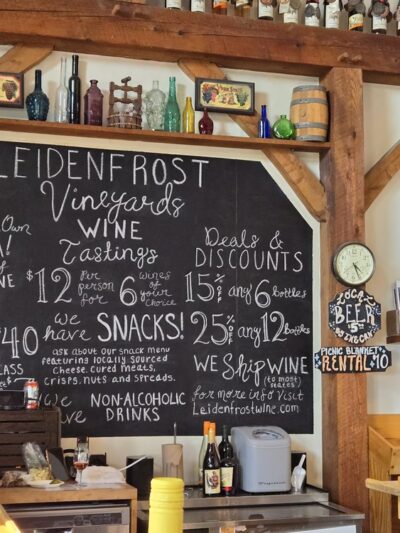 LEIDENFROST
Vineyards
WINE
Tastings
Own
$12 Per person for 6 wines of your choice
$40
we have SNACKS!
ask about our snack menu
featuring locally sourced
cheese, cured meats,
crisps, nuts and spreads.
NON-ALCOHOLIC
DRINKS
Deals &
DISCOUNTS
15% off any 6 bottles
25% off any 12 bottles
WE Ship WINE
(to most states)
for more info visit
Leidenfrostwine.com
LOCAL
BEER
$5
PICNIC BLANKET
RENTAL $10